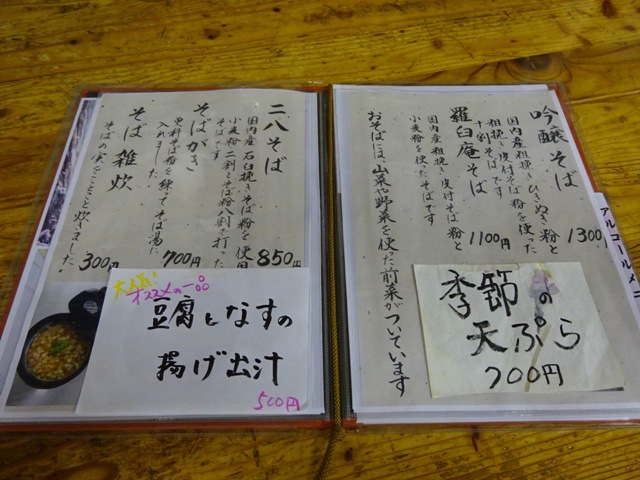 吟醸そば
1300
国内産粗挽きひきぬき粉と
粗挽き皮付そば粉を使った
十割そばです
羅臼庵そば
1100円
国内産粗挽き皮付そば粉と
小麦粉を使ったそばです
おそばには、山菜や野菜を使った前菜がついています
季節の
天ぷら
700円
アルコールメニ
二八そば
850円
国内産石臼挽きそば粉を使用
小麦粉二割とそば粉八割で打った
そばです
そばがき
700円
更科そば粉を練ってそば湯に
入れました
そば雑炊
300円
そばの実をことこと炊きました!
大人気!
オススメの一品
豆腐となすの
揚げ出汁
500円